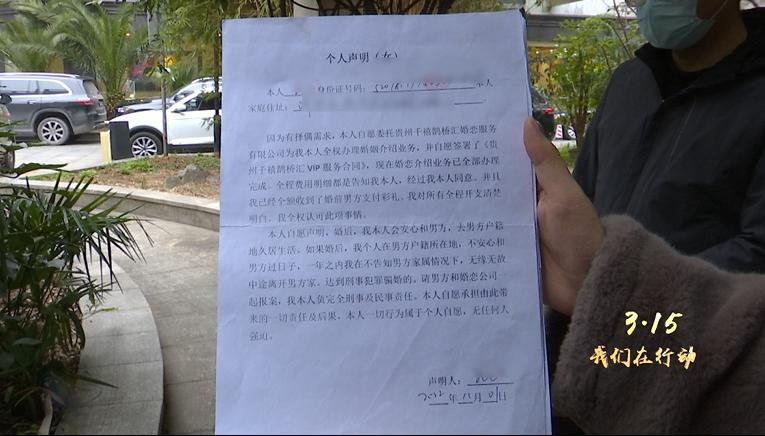 个人声明（女）
本人 身份证号码： 本人
家庭住址：
因为有择偶需求，本人自愿委托贵州千禧鹊桥汇婚恋服务
有限公司为我本人全权办理婚姻介绍业务，并自愿签署了《贵
州千禧鹊桥汇 VIP 服务合同》，现在婚恋介绍业务已全部办理
完成。全程费用明细都是告知我本人，经过我本人同意。并且
我已经全额收到了婚前男方支付彩礼。我对所有全程开支清楚
明白。我全权认可此项事情。
本人自愿声明，婚后，我本人会安心和男方，去男方户籍
地久居生活。如果婚后，我个人在男方户籍所在地，不安心和
男方过日子，一年之内我在不告知男方家属情况下，无缘无故
中途离开男方家。达到刑事犯罪骗婚的。请男方和婚恋公司一
起报案，我本人负完全刑事及民事责任。本人自愿承担由此带
来的一切责任及后果。本人一切行为属于个人自愿，无任何人
强迫。
声明人：
年 11 月 日
3·15
我们在行动